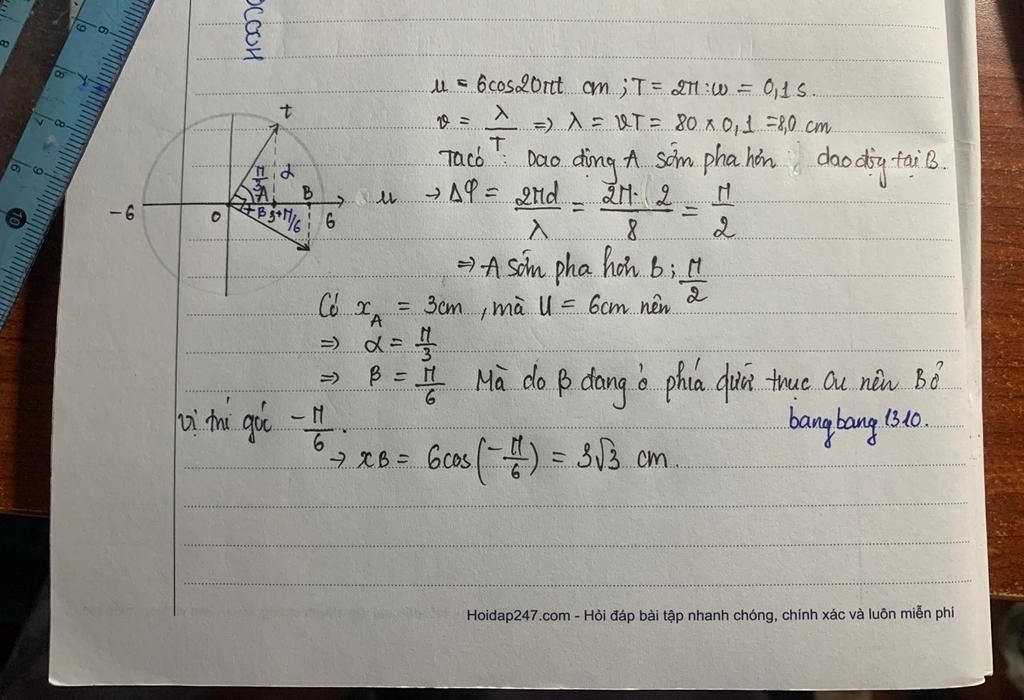 u = 6cos20πt cm ; T = 2π : ω = 0,1 s.
v = λ/T => λ = vT = 80 × 0,1 = 8,0 cm
Ta có : Dao động A sớm pha hơn dao độg tại B.
→ Δφ = 2πd/λ = 2π. 2/8 = π/2
=> A sớm pha hơn B ; π/2
Có x_A = 3cm , mà U = 6cm nên
=> α = π/3
=> β = π/6 Mà do β đang ở phía dưới trục Ou nên B ở
vị trí góc -π/6.
bangbang1310.
→ xB = 6cos(-π/6) = 3√3 cm.
t
π/3 α
A B
-6 O 3 6 u
β
+π/6
Hoidap247.com - Hỏi đáp bài tập nhanh chóng, chính xác và luôn miễn phí